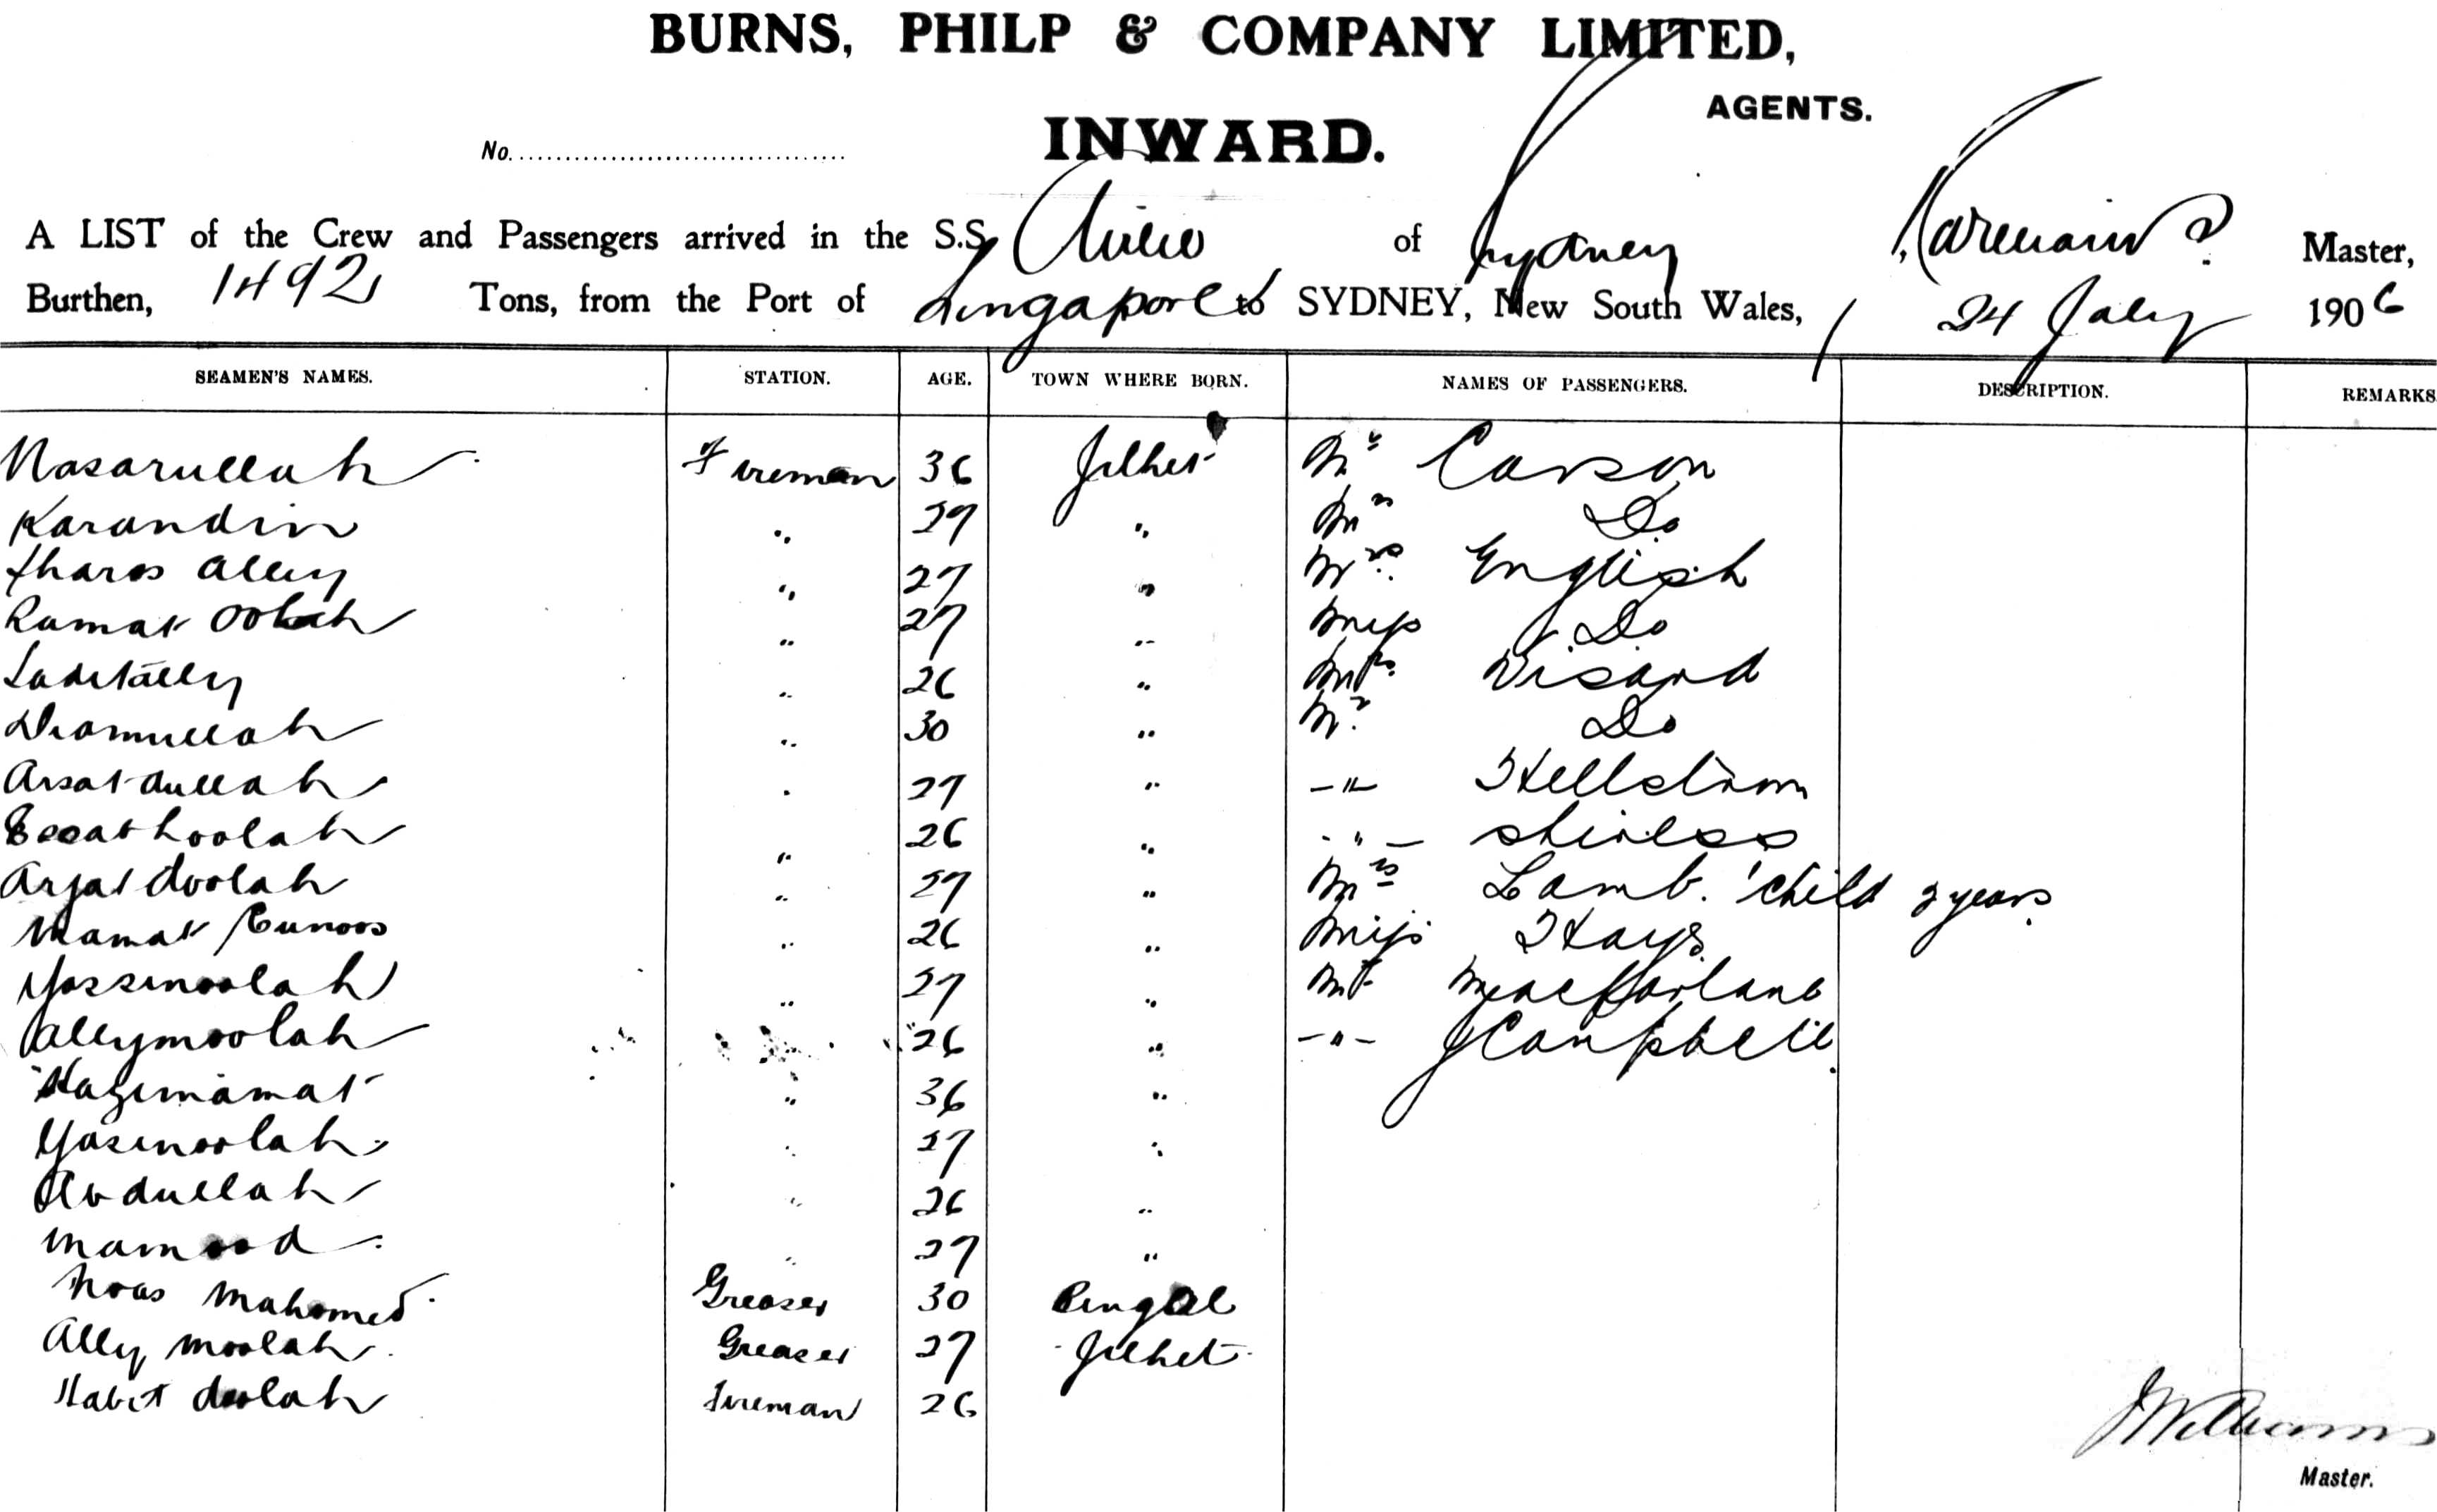 BURNS, PHILP & COMPANY LIMITED,
AGENTS.
INWARD.
No.
A LIST of the Crew and Passengers arrived in the S.S. of Sydney Master,
Burthen, 1492 Tons, from the Port of Singapore to SYDNEY, New South Wales, 24 July 1906
SEAMEN'S NAMES. STATION. AGE. TOWN WHERE BORN. NAMES OF PASSENGERS. DESCRIPTION. REMARKS
Nasarullah Fireman 36 Jilhet Mr Carson
Karandin " 27 " Mrs Do
Alley " 27 " Mrs English
Ramat Oolah " 27 " Miss Do
" 26 " Mrs Visard
30 " Mr Do
Arsatdullah " 27 " -"- Hellstrom
" 26 " -"- Shirlss
Arjatdoolah " 27 " Mrs Lamb. 1 child 2 years
Mamat " 26 " Miss Hays
Yossinoolah " 27 " Mr Macffarlane
Allymoolah 26 " -"- J Campbell
Hazimamat " 36 "
Yasinoolah " 27 "
Abdullah " 26 "
Mamood " 27 "
Noas Mahomed Greaser 30 Bengal
Ally Moolah Greaser 27 Jilhet
Habit doolah Fireman 26
J Williams
Master.